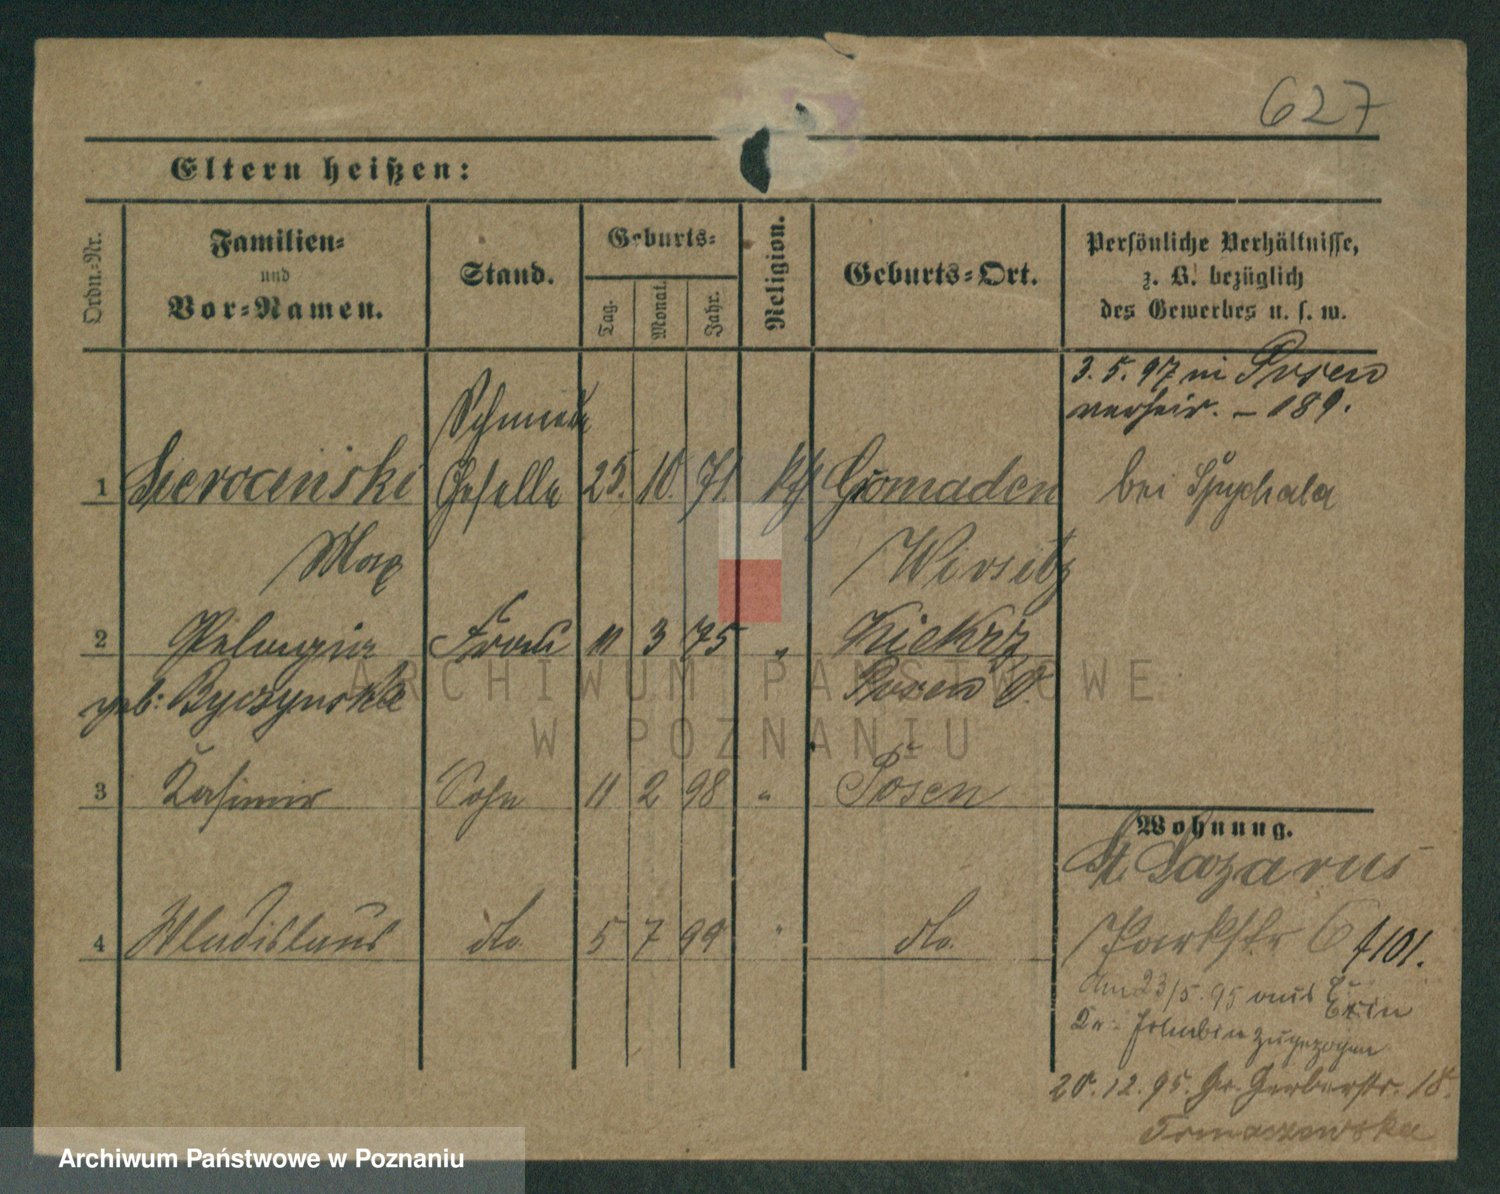 627
Eltern heißen:
Ordn.-Nr.
Familien-
und
Vor-Namen.
Stand.
Geburts-
Tag.
Monat.
Jahr.
Religion.
Geburts-Ort.
Persönliche Verhältnisse,
z. B. bezüglich
des Gewerbes u. s. w.
3. 5. 97 in Posen
verheir. – 189.
Schmiede
1 Sierocinski Geselle 25. 10. 71. kth Gromaden bei Spychala
Max Wirsitz
2 Pelagia Frau 11 3 75 " Kiekrz
geb. Byczynska Posen O.
3 Kasimir Sohn 11 2 98 " Posen
Wohnung.
St. Lazarus
4 Wladislaus do. 5 7 99 " do.
Parkstr 6 4101.
Am 23/5. 95 aus Exin
Kr. Schubin zugezogen
20. 12. 95. Gr. Gerberstr. 18.
Tomaszewska
ARCHIWUM PAŃSTWOWE
W POZNANIU
Archiwum Państwowe w Poznaniu